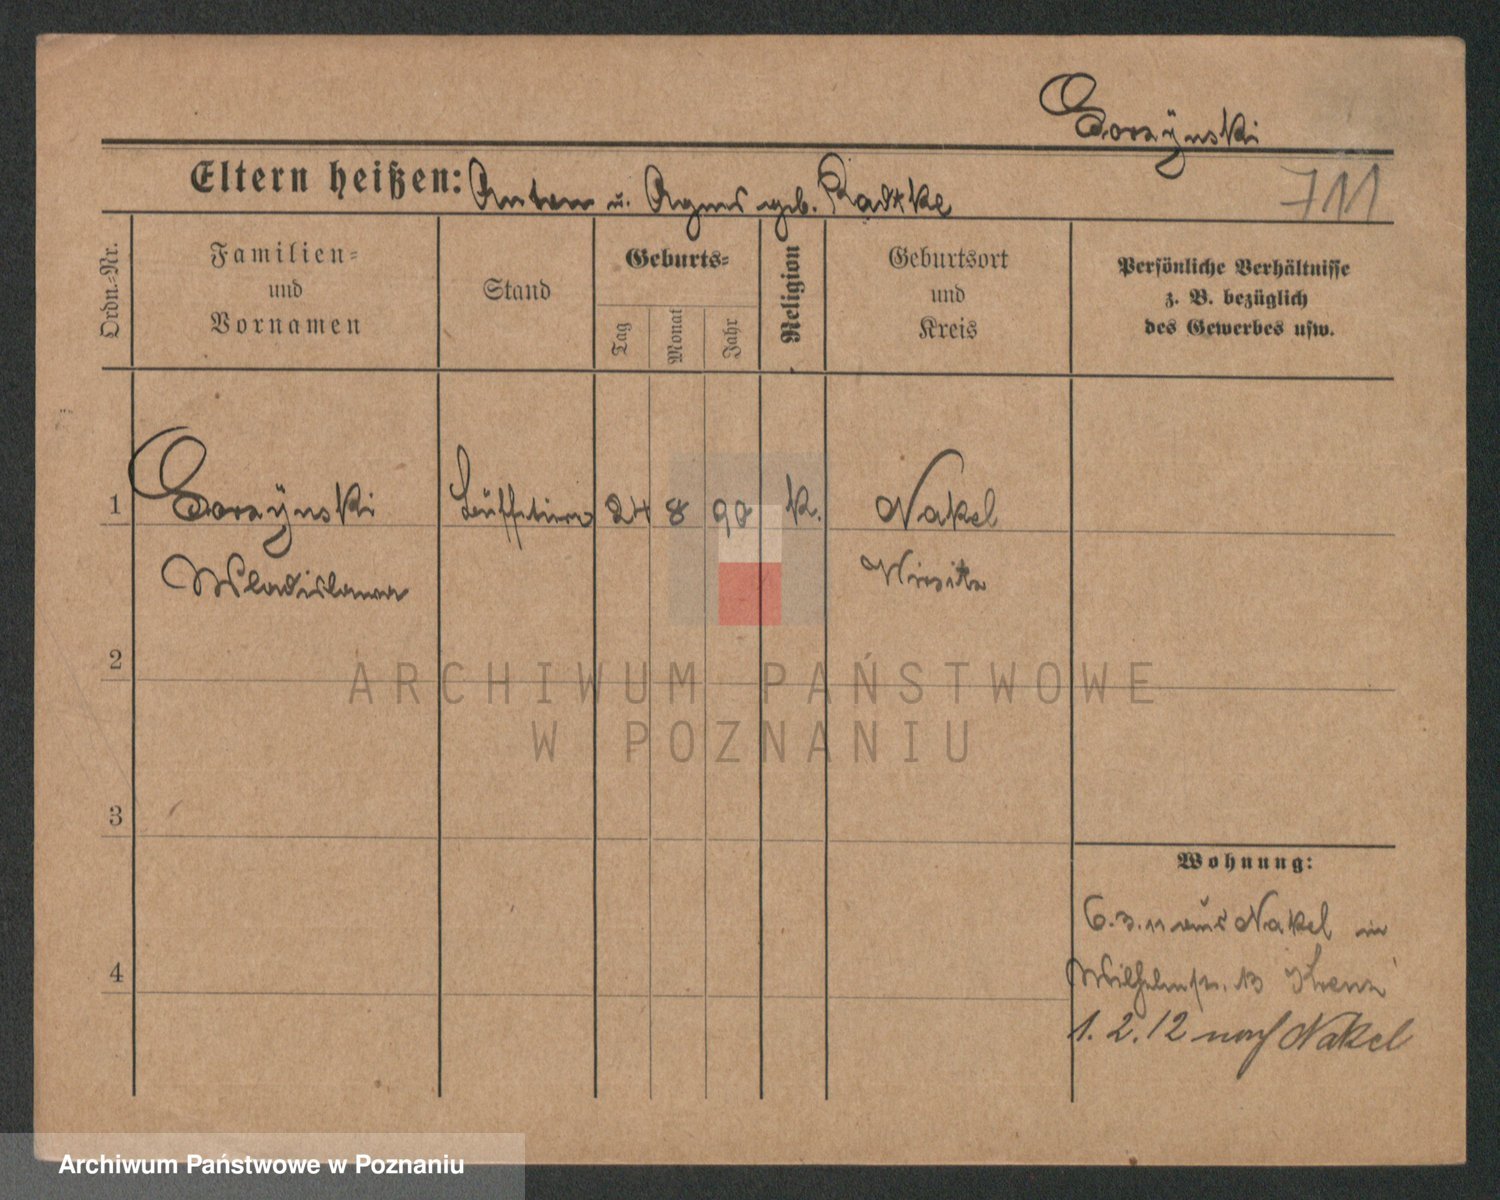 Gorzÿnski
Eltern heißen: Anton u. Agnes geb. Radtke
711
Ordn.-Nr.
Familien-
und
Vornamen
Stand
Geburts-
Tag
Monat
Jahr
Religion
Geburtsort
und
Kreis
Persönliche Verhältnisse
z. B. bezüglich
des Gewerbes usw.
1 Gorzÿnski 24 8 98 k. Nakel
Wladislawa Wirsitz
2
3
4
Wohnung:
6.3.11 aus Nakel in
Wilhelmstr. 13
1.2.12 nach Nakel
ARCHIWUM PAŃSTWOWE
W POZNANIU
Archiwum Państwowe w Poznaniu